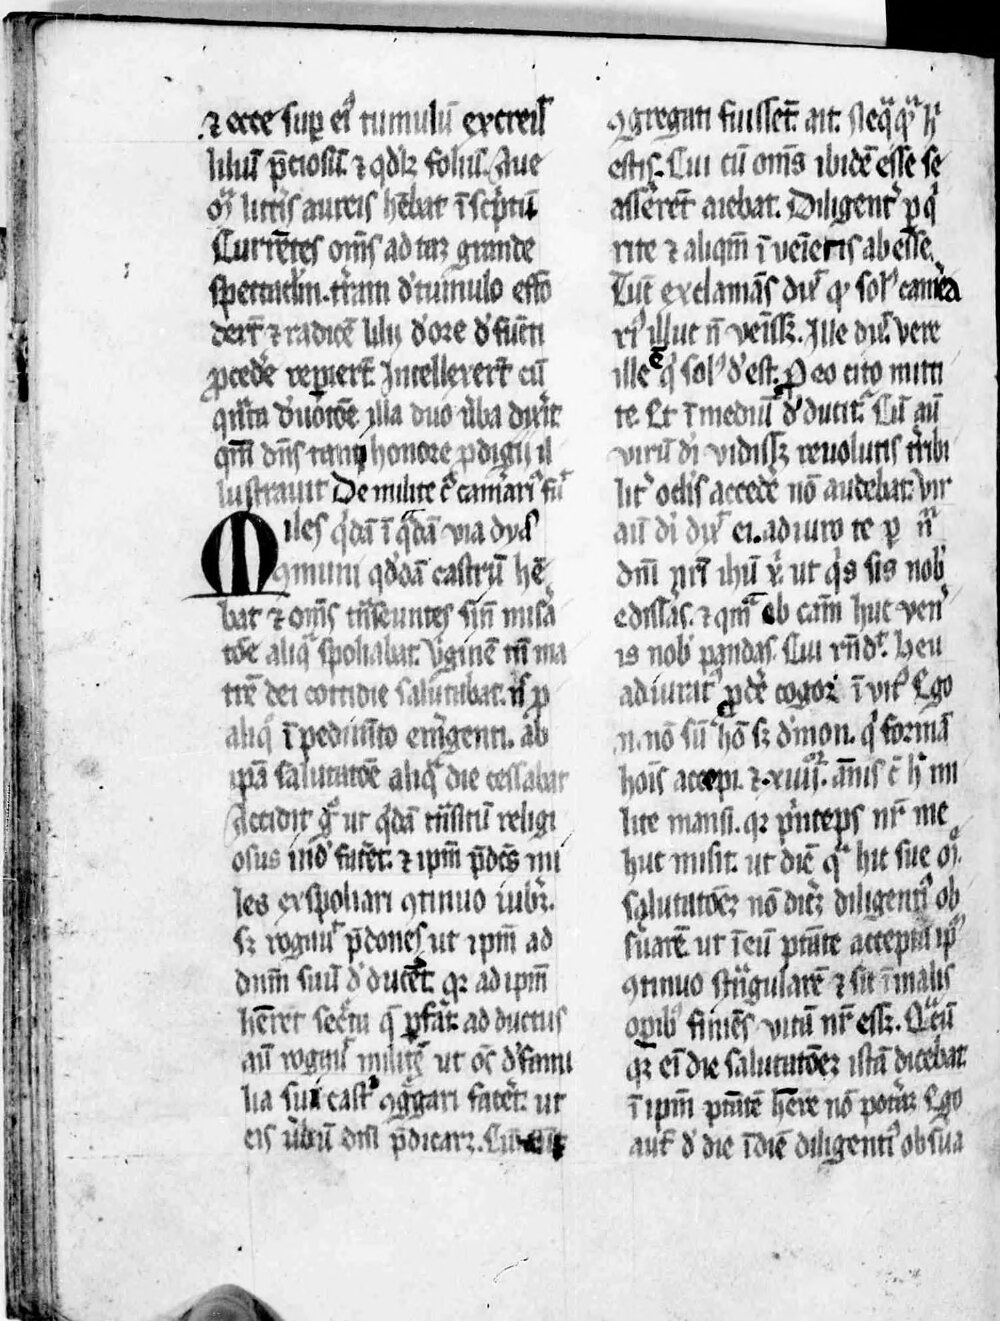 ⁊ ecce sup̱ eiꝰ tumulū excreuit
liliū p̄ciosū. ⁊ qđlꝫ foliū. Aue
mͣ litt̄is aureis hēbat ī sc̄ptū
Currētes om̄s ad tā grande
spectac̄lm. t̄ram d̓ tumulo effo
der̄t ⁊ radicē lilij d̓ ore d̓fūcti
ꝓced̓e rep̱ier̄t. Intellexer̄t cū
qͣnta d̓uotōe illa duo ūba dix̓it
qm̄ dn̄s tanti honore ꝓdigij il
lustrauit De milite ⁊ camͣariꝰ
Miles qͥdā ī qͣdā via dyā
ꝯmuni qđdā castrū hē
bat ⁊ om̄s tn̄seuntes sin̄ misͣa
tōe aliqͣ spoliabat. V̓ginē tn̄ ma
trē dei cottidie salutabat. n̓ p̱
aliqͦ īpedimēto em̓genti. ab
ip̄a salutatōe aliqͣ die cessabat
Accidit gͦ ut qͥdā tn̄situ religi
osus ind̓ facēt. ⁊ ip̄m p̄dc̄s mi
les exspoliari ꝯtinuo iubꝫ.
sꝫ rogauit p̄dones ut ip̄m ad
dn̄m suū d̓ducēt. qꝛ ad ip̄m
hēret secͤta qͣ p̱fāt. adductus
aū rogauit militē ut om̄s d̓ famí
lia sui castͥ ꝯgͤgari facēt. ut
eis ūbū dn̄i p̄dicarꝫ. Cū
ꝯgregati fuissēt. ait. Neqͣqͣ hͥ
estis. Cui cū om̄s ibidē esse se
asserēt aiebat. Diligent̓ p̱qͥ
rite ⁊ aliqm̄ ī ueīetis abesse.
Tūc exclamās dix̓ qͥ solꝰ camͣa
riꝰ illuc n̄ vēissꝫ. Ille dix̓. vere
ille ē qͥ solꝰ d̓est. P̱ eo cito mitti
te. Et ī mediū d̓ducitꝰ. Cū aū
virū di vidissꝫ reuolutis t̓ribi
lit̓ oc̄lis acced̓e nō audebat. Vir
aū di dix̓ ei. adiuro te p̱ n̄
dn̄i nr̄i ihū x̓. ut qͥs sis nobꝰ
edissas. ⁊ qm̄ ob cām huc ven̓
is nobꝰ pandas. Cui rn̄d̓t. heu
adiuratꝰ ꝓd̓e cogor ī vitꝰ Ego
n. nō sū hō sꝫ d̓mon. qͥ formā
hoīs accepi. ⁊ .xiiij. ānis c̄ hͦ mi
lite mansi. qꝛ pͥnceps nr̄ me
huc misit. ut diē qͣ hic sue mͦ
salutatōeꝫ nō dic̓ꝫ diligentꝰ ob
s̓uarē ut ī eū ptāte accepta ip̄m
ꝯtinuo stͣgularē ⁊ sic ī malis
oꝑibꝰ finiēs vitā nr̄ essꝫ. Qͣcū
qꝫ eī die salutatōeꝫ istā dicebat
ī ip̄m ptātē hēre nō poterā Ego
aūt d̓ die ī diē diligentꝰ obs̓ua